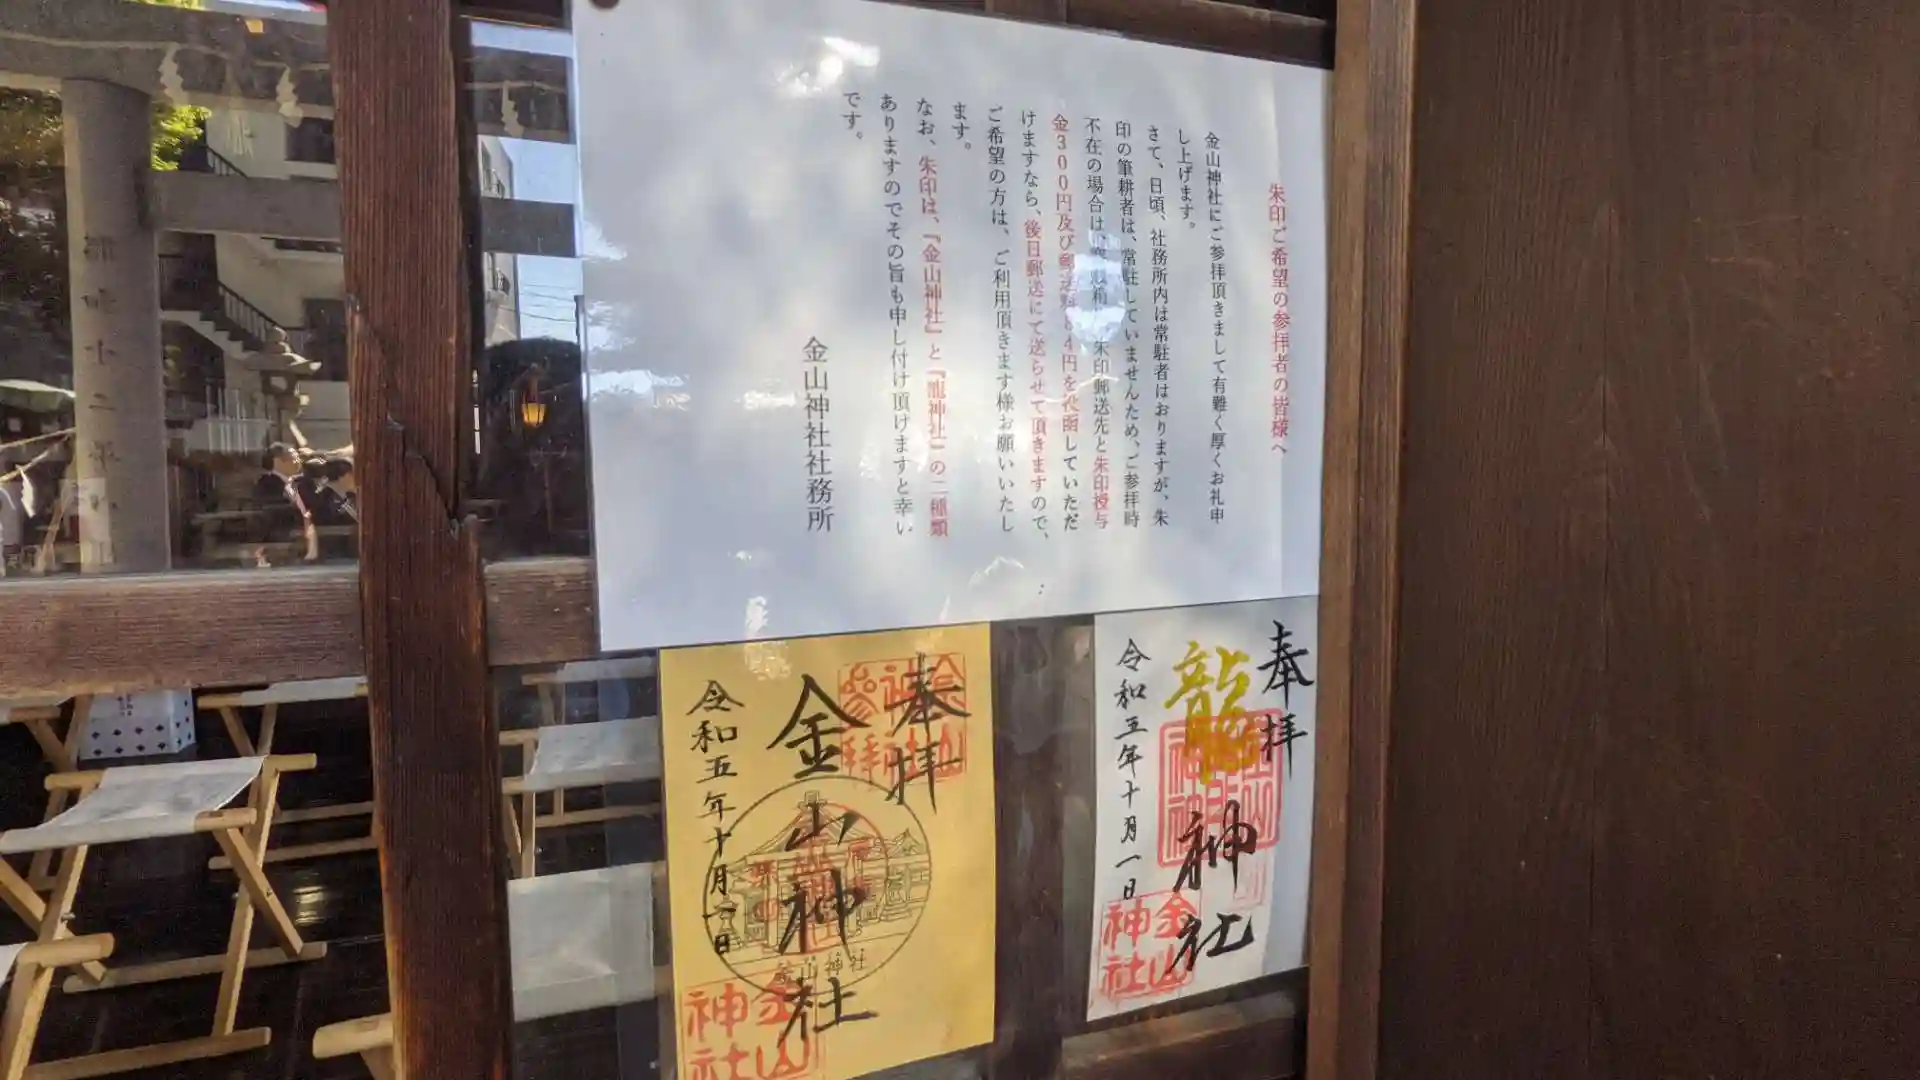 朱印ご希望の参拝者の皆様へ
金山神社にご参拝頂きまして有難く厚くお礼申
し上げます。
さて、日頃、社務所内は常駐者はおりますが、朱
印の筆耕者は、常駐していませんため、ご参拝時
不在の場合は、朱印郵送先と朱印授与
金300円及び郵送料84円を投函していただ
けますなら、後日郵送にて送らせて頂きますので、
ご希望の方は、ご利用頂きます様お願いいたし
ます。
なお、朱印は、『金山神社』と『龍神社』の二種類
ありますのでその旨も申し付け頂けますと幸い
です。
金山神社社務所
奉拝
龍神社
令和五年十月一日
金山神社
奉拝
金山神社
令和五年十月一日
金山神社
金山神社